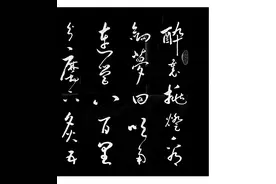 醉里挑燈看
劍夢回吹角
連營八百里
分麾下炙五